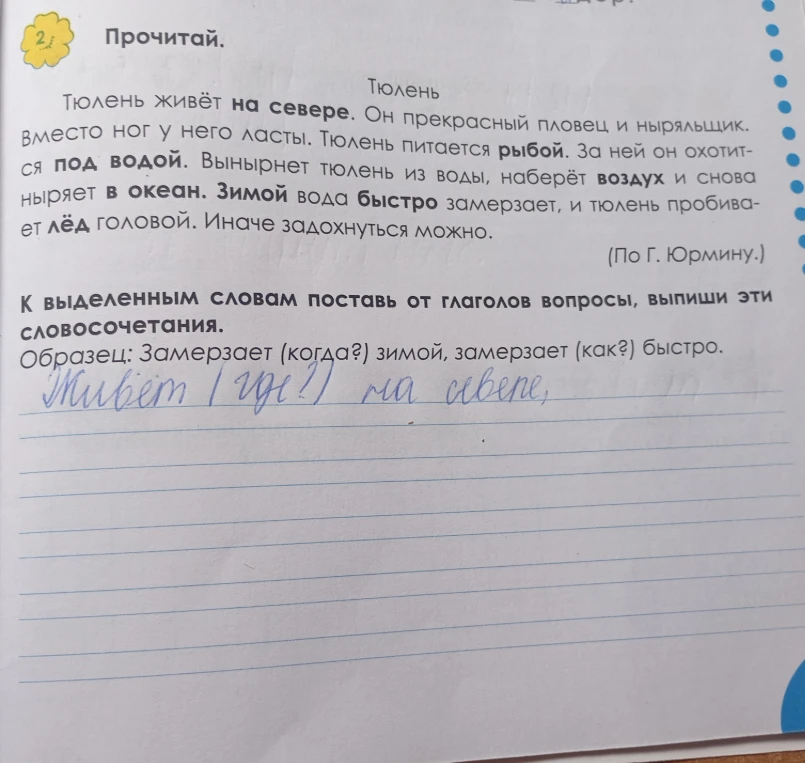 2.
Прочитай.
Тюлень
Тюлень живёт на севере. Он прекрасный пловец и ныряльщик.
Вместо ног у него ласты. Тюлень питается рыбой. За ней он охотит-
ся под водой. Вынырнет тюлень из воды, наберёт воздух и снова
ныряет в океан. Зимой вода быстро замерзает, и тюлень пробива-
ет лёд головой. Иначе задохнуться можно.
(По Г. Юрмину.)
К выделенным словам поставь от глаголов вопросы, выпиши эти
словосочетания.
Образец: Замерзает (когда?) зимой, замерзает (как?) быстро.
Живёт (где?) на севере,